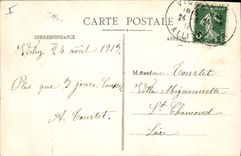 CARTE POSTALE
CORRESPONDANCE
Vichy le 4 août 1912
Plus que 3 jours.
A. Tourtet
Monsieur Tourtet
Villa Mignonnette
St Chamond
Loire